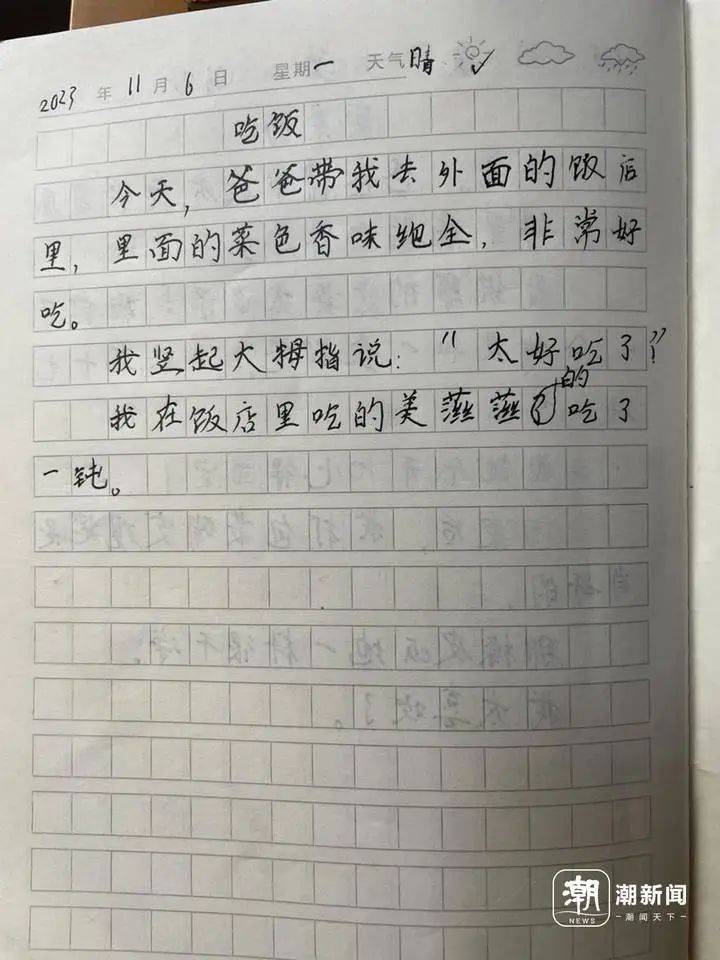 2023 年 11 月 6 日 星期一 天气晴 ✓
吃饭
今天,爸爸带我去外面的饭后
里,里面的菜色香味绝全,非常好
吃。
我竖起大拇指说:“太好吃了”!
我在饭店里吃的美燕燕的吃了
一钝。
潮 NEWS 潮新闻
潮闻天下